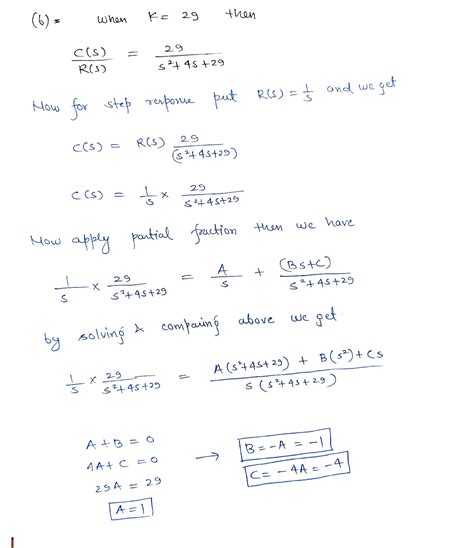 (b) = when K = 29 then
C(s)/R(s) = 29/(s²+4s+29)
Now for step response put R(s) = 1/s and we get
C(s) = R(s) 29/(s²+4s+29)
C(s) = 1/s × 29/(s²+4s+29)
Now apply partial fraction then we have
1/s × 29/(s²+4s+29) = A/s + (Bs+C)/(s²+4s+29)
by solving & comparing above we get
1/s × 29/(s²+4s+29) = (A(s²+4s+29) + B(s²) + Cs)/(s(s²+4s+29))
A+B = 0
4A+C = 0 → B = -A = -1
29A = 29 C = -4A = -4
A = 1